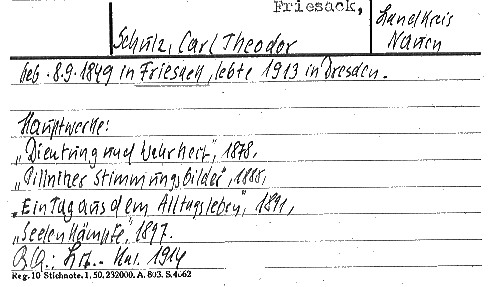 Friesack,
Landkreis
Nauen
Schulz, Carl Theodor
Geb. 8.9.1849 in Friesack, lebte 1913 in Dresden.
Hauptwerke:
„Dichtung und Wahrheit", 1878,
„Pillnitzer Stimmungsbilder", 1888,
„Ein Tag aus dem Alltagsleben", 1891,
„Seelenkämpfe", 1897.
Lit. - Kal. 1914
Reg. 10 Stichnote. 1, 50, 232000. A. 803. S. 4662